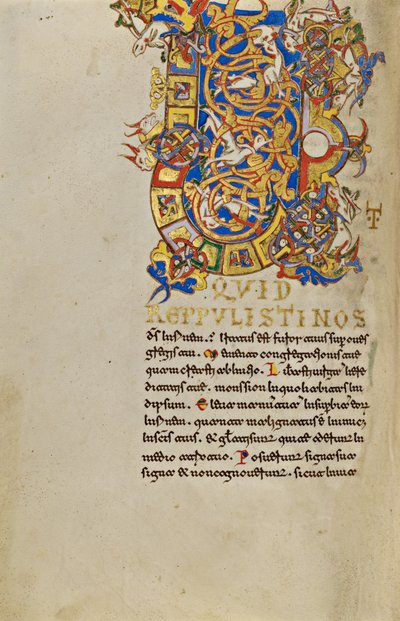 U
T
QUID
REPPULISTI NOS
ds in finem. Iratus est furor tuus sup oves
gregis tui. Memento congregationis tue
quam creasti ab initio. Liberasti virga here
ditatis tue. mons sion in quo habitasti in
id ipsum. Eleva manus tuas in superbias eor
in finem. quanta malignatus est inimic
in scis tuis. & gliati sunt qui te oderunt in
medio atrio tuo. Posuerunt signa sua
signa & non cognoverunt. sicut in via